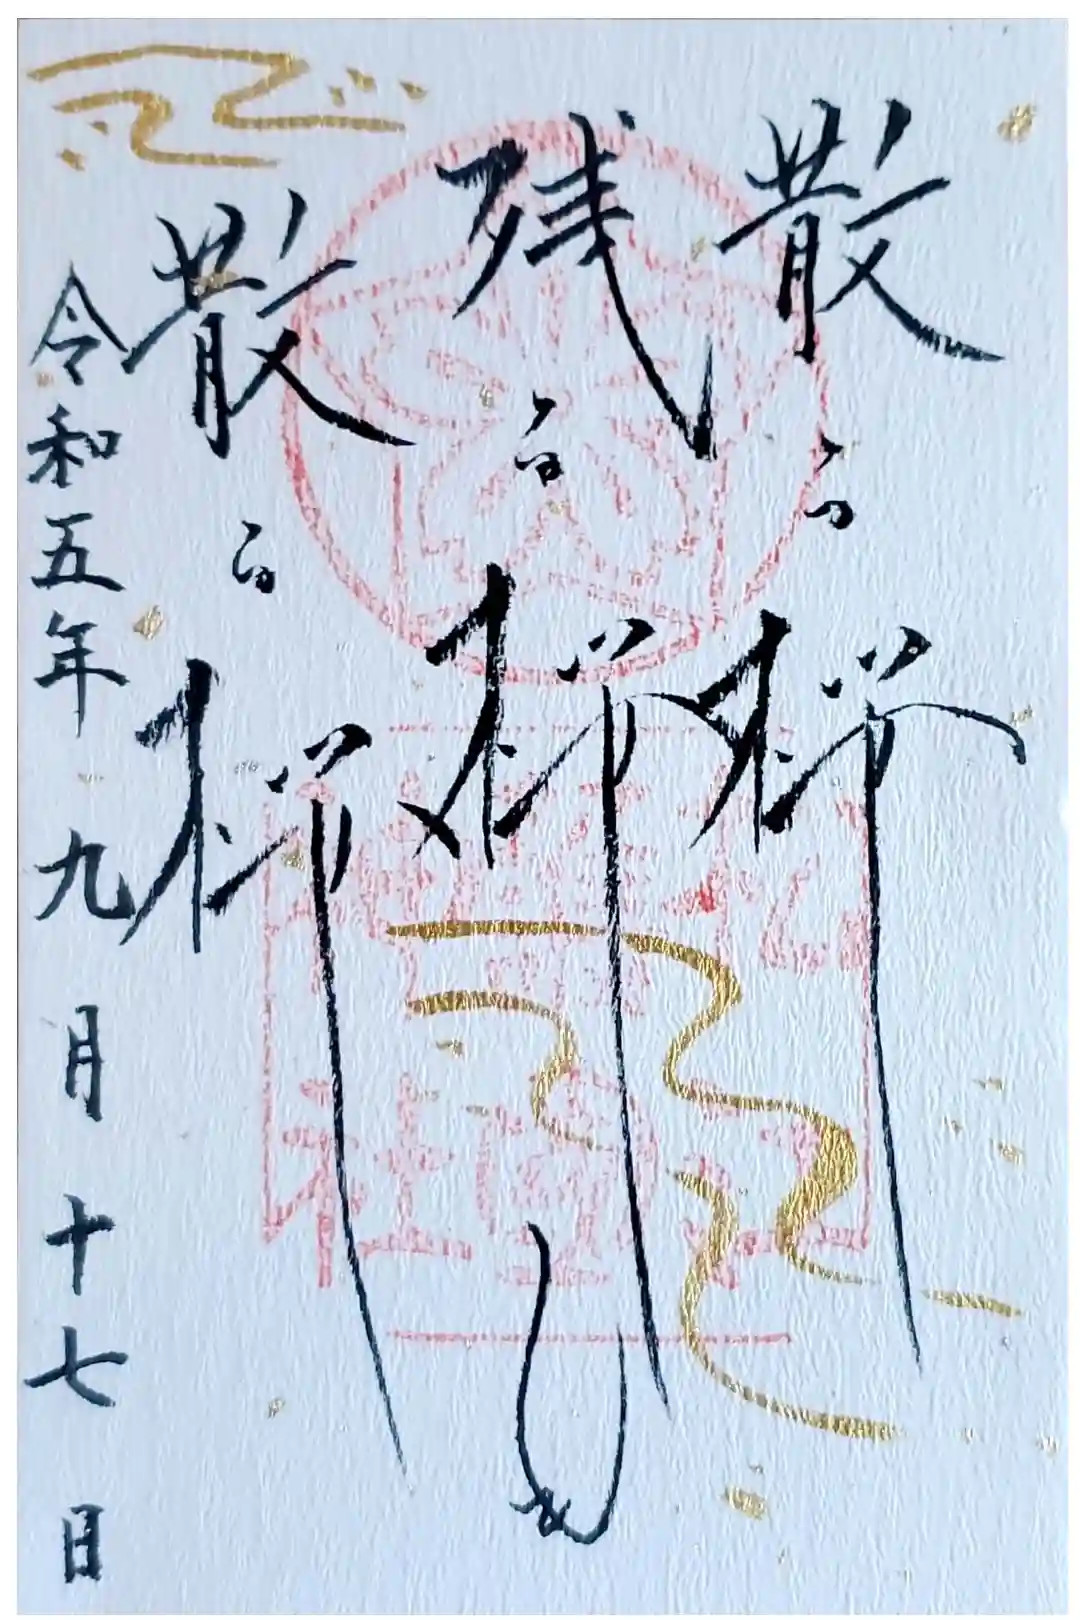 散る桜
残る桜も
散る桜
令和五年九月十七日